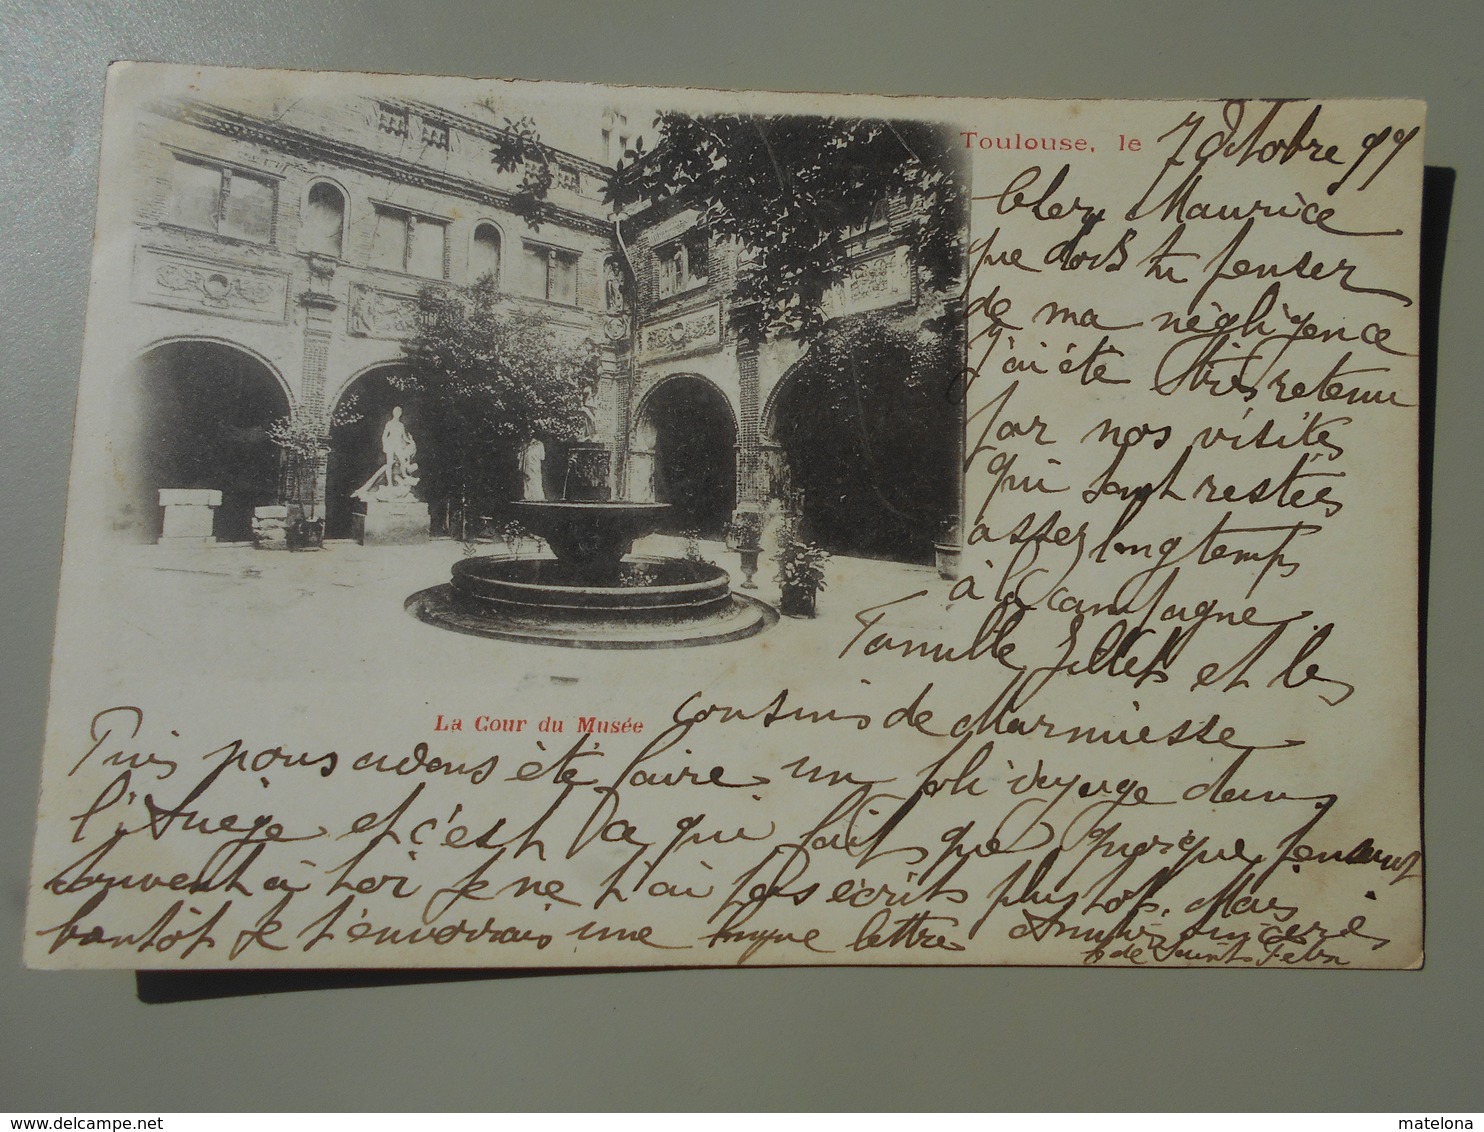 Toulouse, le 7 Octobre 99
Cher Maurice
que dois tu penser
de ma négligence
J'ai été très retenu
par nos visites
qui sont restées
assez longtemps
à la campagne.
Famille et les
La Cour du Musée
cousins de Marmiesse
Puis nous avons été faire un joli voyage dans
l'Ariège et c'est ça qui fait que quoique pensant
souvent à toi je ne t'ai pas écrit plus tot. Mais
bientôt je t'enverrais une longue lettre Amitiés sincères
de Saint Felix
matelona